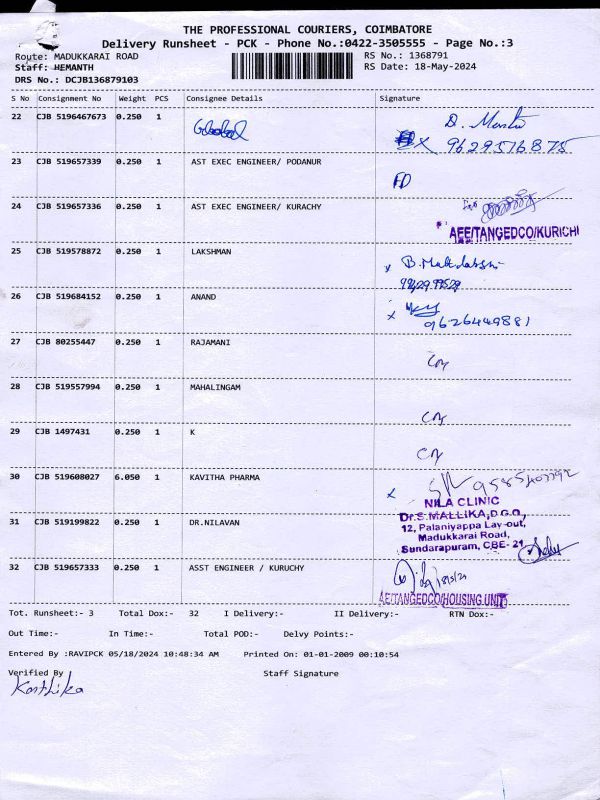 THE PROFESSIONAL COURIERS, COIMBATORE
Delivery Runsheet - PCK - Phone No.:0422-3505555 - Page No.:3
Route: MADUKKARAI ROAD RS No.: 1368791
Staff: HEMANTH RS Date: 18-May-2024
DRS No.: DCJB136879103
S No Consignment No Weight PCS Consignee Details Signature
22 CJB 5196467673 0.250 1
9629516875
23 CJB 519657339 0.250 1 AST EXEC ENGINEER/ PODANUR
24 CJB 519657336 0.250 1 AST EXEC ENGINEER/ KURACHY
AEE/TANGEDCO/KURICHI
25 CJB 519578872 0.250 1 LAKSHMAN
26 CJB 519684152 0.250 1 ANAND
9626449881
27 CJB 80255447 0.250 1 RAJAMANI
28 CJB 519557994 0.250 1 MAHALINGAM
29 CJB 1497431 0.250 1 K
30 CJB 519608027 6.050 1 KAVITHA PHARMA
NILA CLINIC
Dr.S.MALLIKA,D.G.O.,
31 CJB 519199822 0.250 1 DR.NILAVAN
12, Palaniyappa Lay-out,
Madukkarai Road,
Sundarapuram, CBE- 21
32 CJB 519657333 0.250 1 ASST ENGINEER / KURUCHY
AE/TANGEDCO/HOUSING UNIT
Tot. Runsheet:- 3 Total Dox:- 32 I Delivery:- II Delivery:- RTN Dox:-
Out Time:- In Time:- Total POD:- Delvy Points:-
Entered By :RAVIPCK 05/18/2024 10:48:34 AM Printed On: 01-01-2009 00:10:54
Verified By Staff Signature
Karthika